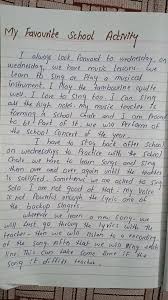 My Favourite School Activity
I always look forward to wednesday, on
wednesday, we have music lessons. We
learn to sing or Play a musical
Instrument. I Play the tambourine quite
well. I love to Sing too. I can Sing
all the high notes. My music teacher is
forming a School choir and I am Proud
to be Part of it. we will Perform
at the School Concert of the year.
I have to stay back after School
on wednesday to Practice with the School
Choir. we have to learn Songs and Sing
them over and over again until the teacher
is Satisfied. Sometimes we are asked to Sing
Solo. I am not good at that. My Voice
is not Powerful enough. I'm only one of
the backup Singers.
whenever we learn a new Song, we
will first go through the lyrics with the
teacher. then we will listen to a recording
of the Song. After that we will Sing
line. This can take some time if the
Song is difficult